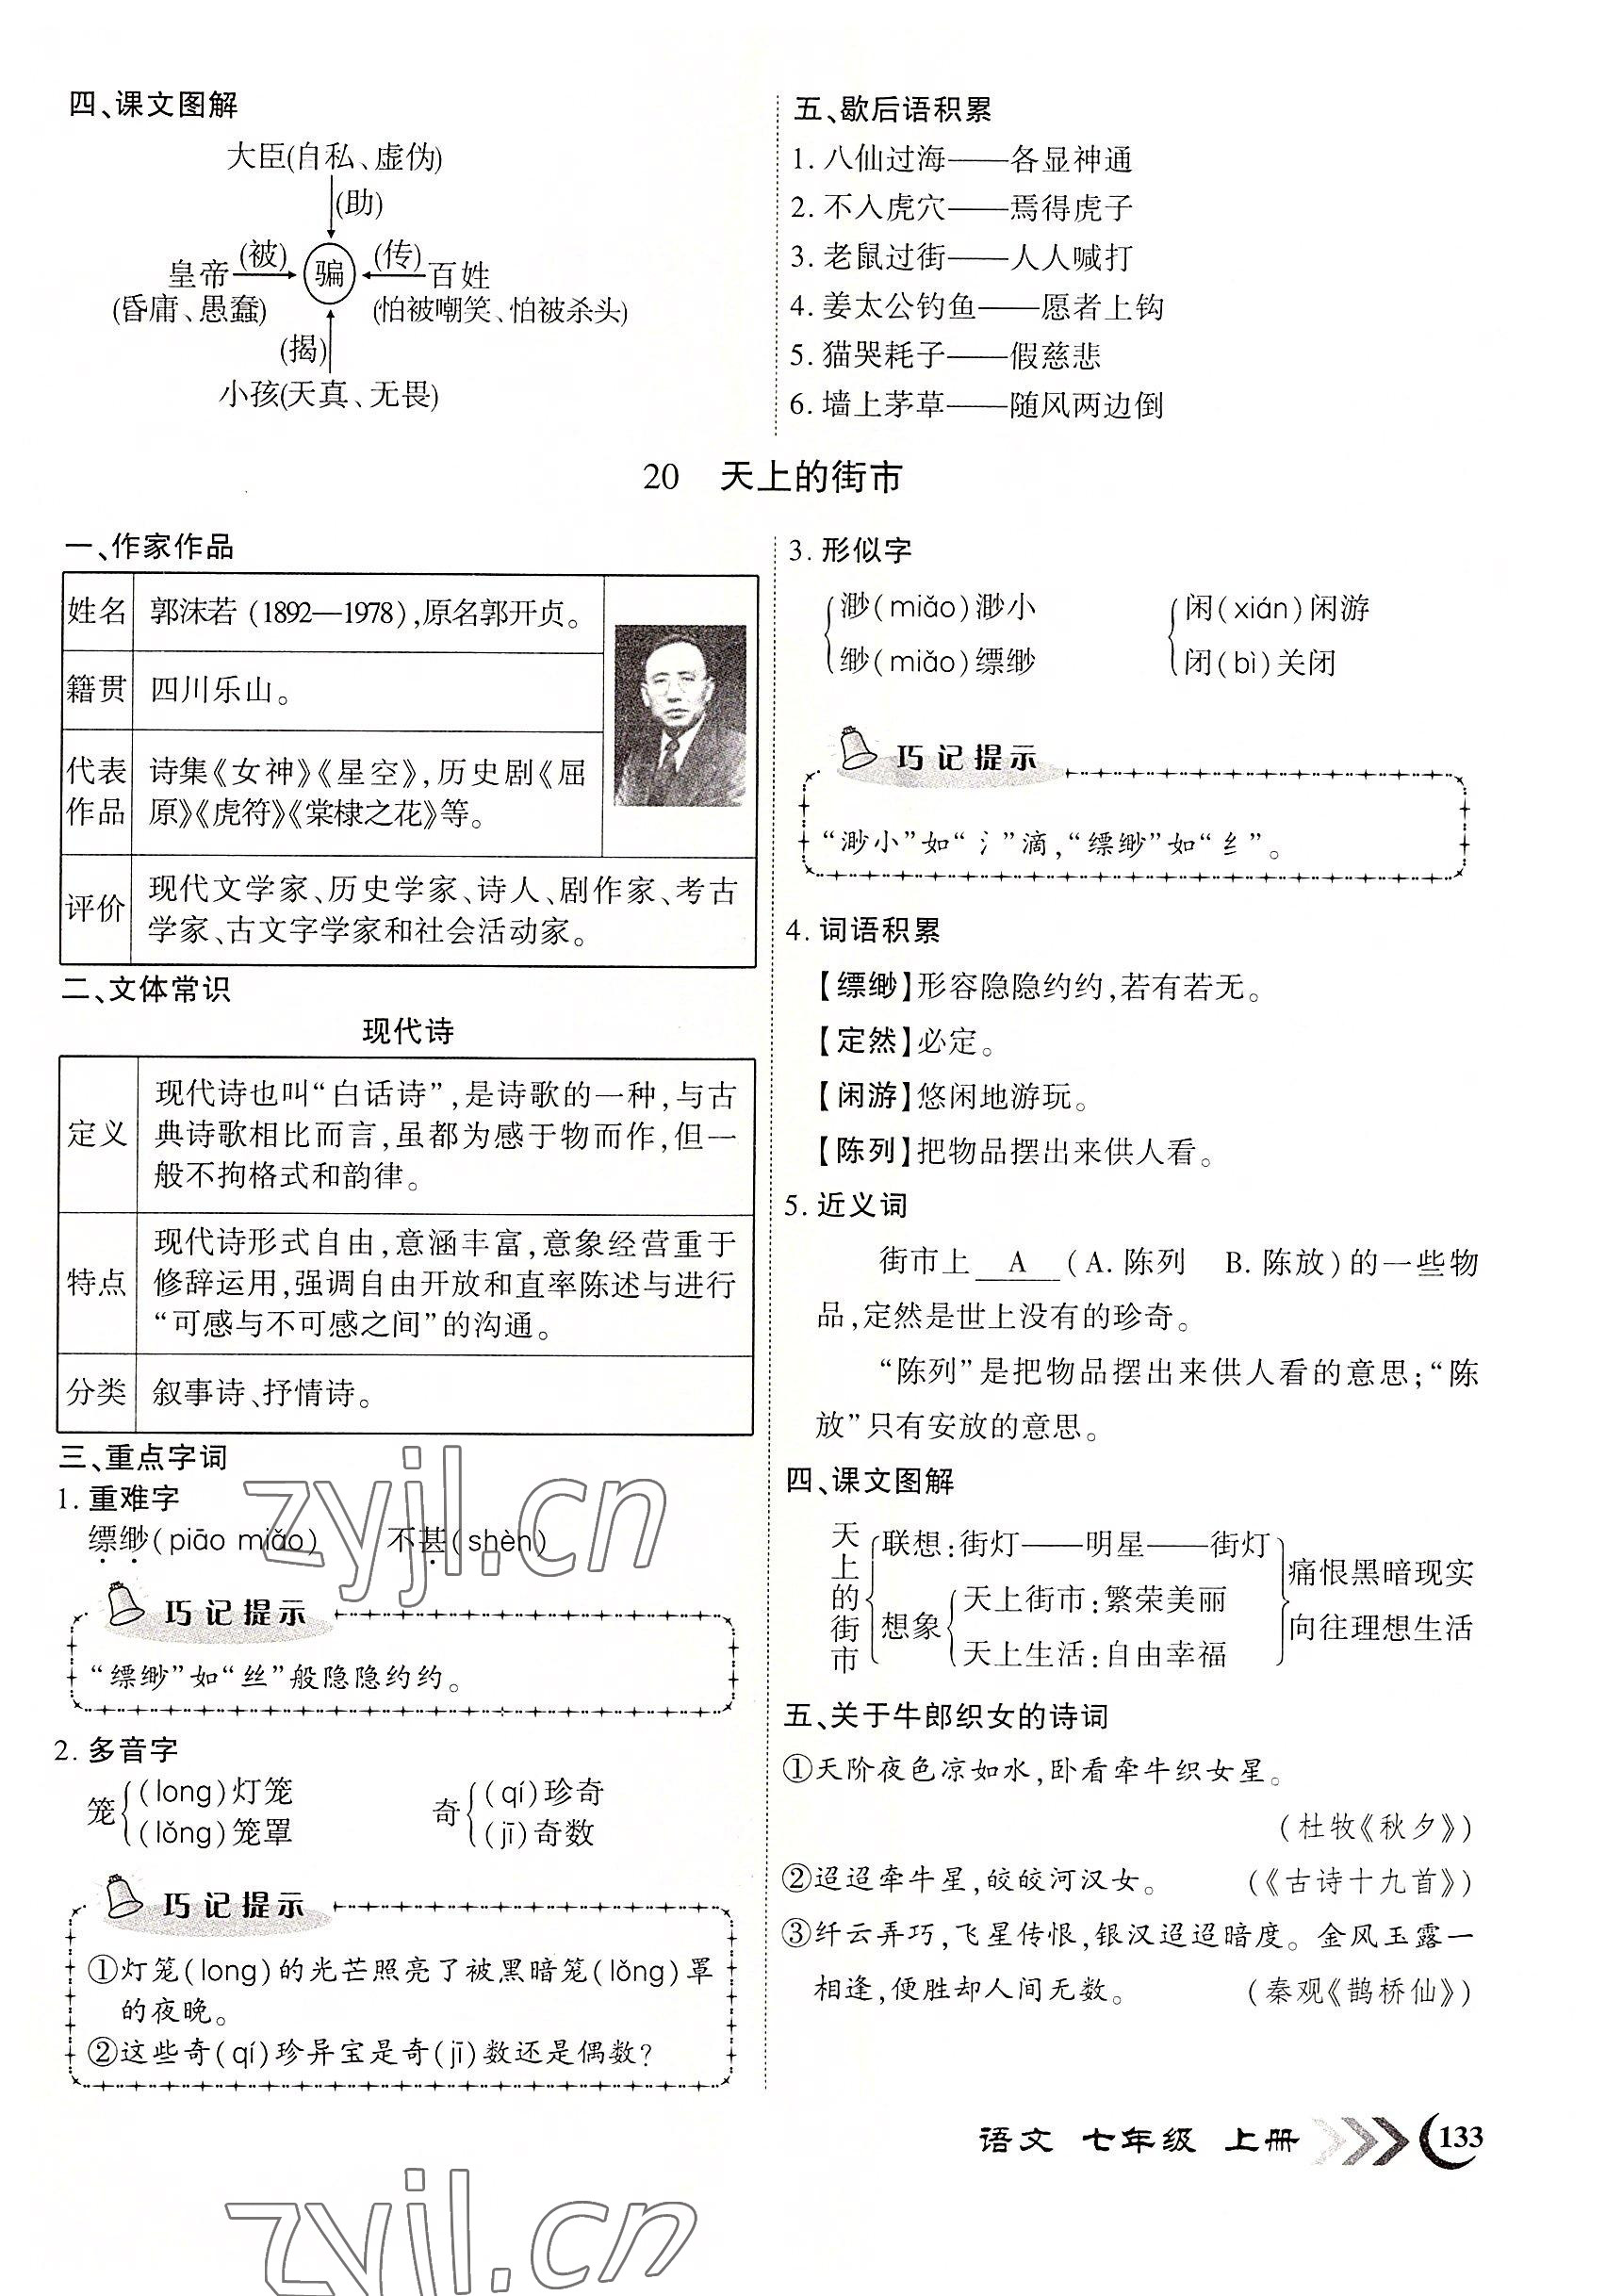 四、课文图解
大臣(自私、虚伪)
(助)
皇帝(被)骗(传)百姓
(昏庸、愚蠢) (怕被嘲笑、怕被杀头)
(揭)
小孩(天真、无畏)
五、歇后语积累
1. 八仙过海——各显神通
2. 不入虎穴——焉得虎子
3. 老鼠过街——人人喊打
4. 姜太公钓鱼——愿者上钩
5. 猫哭耗子——假慈悲
6. 墙上茅草——随风两边倒
20 天上的街市
一、作家作品
姓名 郭沫若 (1892—1978),原名郭开贞。
籍贯 四川乐山。
代表作品 诗集《女神》《星空》,历史剧《屈
原》《虎符》《棠棣之花》等。
评价 现代文学家、历史学家、诗人、剧作家、考古
学家、古文字学家和社会活动家。
二、文体常识
现代诗
定义 现代诗也叫“白话诗”,是诗歌的一种,与古
典诗歌相比而言,虽都为感于物而作,但一
般不拘格式和韵律。
特点 现代诗形式自由,意涵丰富,意象经营重于
修辞运用,强调自由开放和直率陈述与进行
“可感与不可感之间”的沟通。
分类 叙事诗、抒情诗。
三、重点字词
1. 重难字
缥缈(piāo miǎo) 不甚(shèn)
巧记提示
“缥缈”如“丝”般隐隐约约。
2. 多音字
笼 (long)灯笼 奇 (qí)珍奇
(lǒng)笼罩 (jī)奇数
巧记提示
①灯笼(long)的光芒照亮了被黑暗笼(lǒng)罩
的夜晚。
②这些奇(qí)珍异宝是奇(jī)数还是偶数?
3. 形似字
渺(miǎo)渺小 闲(xián)闲游
缈(miǎo)缥缈 闭(bì)关闭
巧记提示
“渺小”如“氵”滴,“缥缈”如“纟”。
4. 词语积累
【缥缈】形容隐隐约约,若有若无。
【定然】必定。
【闲游】悠闲地游玩。
【陈列】把物品摆出来供人看。
5. 近义词
街市上 A (A. 陈列 B. 陈放)的一些物
品,定然是世上没有的珍奇。
“陈列”是把物品摆出来供人看的意思;“陈
放”只有安放的意思。
四、课文图解
天上的街市
联想:街灯——明星——街灯
想象
天上街市:繁荣美丽
天上生活:自由幸福
痛恨黑暗现实
向往理想生活
五、关于牛郎织女的诗词
①天阶夜色凉如水,卧看牵牛织女星。
(杜牧《秋夕》)
②迢迢牵牛星,皎皎河汉女。 (《古诗十九首》)
③纤云弄巧,飞星传恨,银汉迢迢暗度。金风玉露一
相逢,便胜却人间无数。 (秦观《鹊桥仙》)
语文 七年级 上册 133
zyjl.cn
zyjl.cn